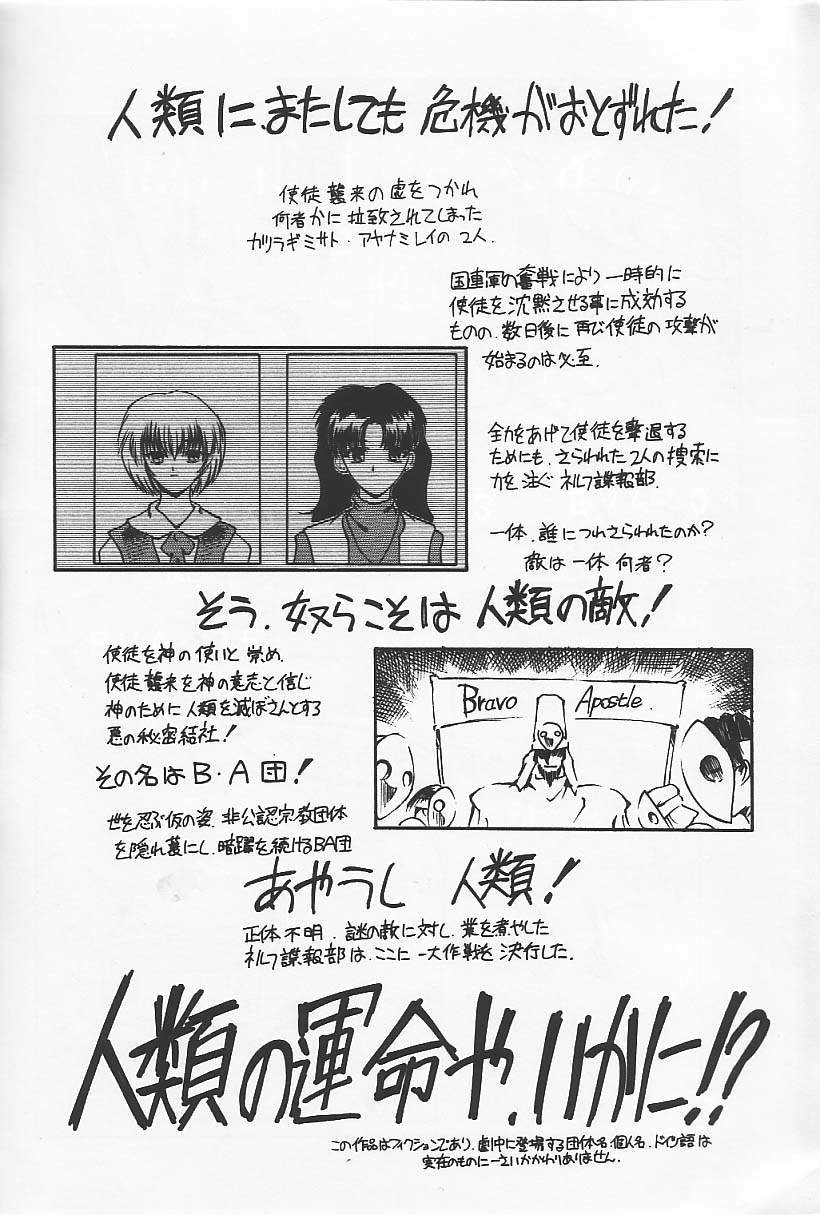 人類に、またしても 危機がおとずれた!
使徒襲来の虚をつかれ
何者かに拉致されてしまった
カツラギミサト・アヤナミレイの2人.
国連軍の奮戦により一時的に
使徒を沈黙させる事に成功する
ものの、数日後に再び使徒の攻撃が
始まるのは必至.
全力をあげて使徒を撃退する
ためにも、さらわれた2人の捜索に
力を注ぐネルフ諜報部.
一体、誰につれさられたのか?
敵は一体何者?
そう、奴らこそは 人類の敵!
使徒を神の使いと崇め、
使徒襲来を神の意志と信じ
神のために人類を滅ぼさんとする
悪の秘密結社!
その名はB・A団!
Bravo Apostle.
世を忍ぶ仮の姿、非公認宗教団体
を隠れ蓑にし、暗躍を続けるBA団
あやうし 人類!
正体不明、謎の敵に対し、業を煮やした
ネルフ諜報部は、ここに一大作戦を決行した.
人類の運命や、いかに!?
この作品はフィクションであり、劇中に登場する団体名、個人名、ドイツ語は
実在のものに一さいかかわりありません.